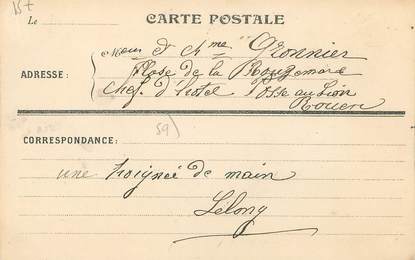 15+
CARTE POSTALE
Le
Meur & Mme Gronnier
ADRESSE: Place de la Rougemare
Chef d'hotel Fosse au Lion
Rouen
59
CORRESPONDANCE:
une poignée de main
Lelong